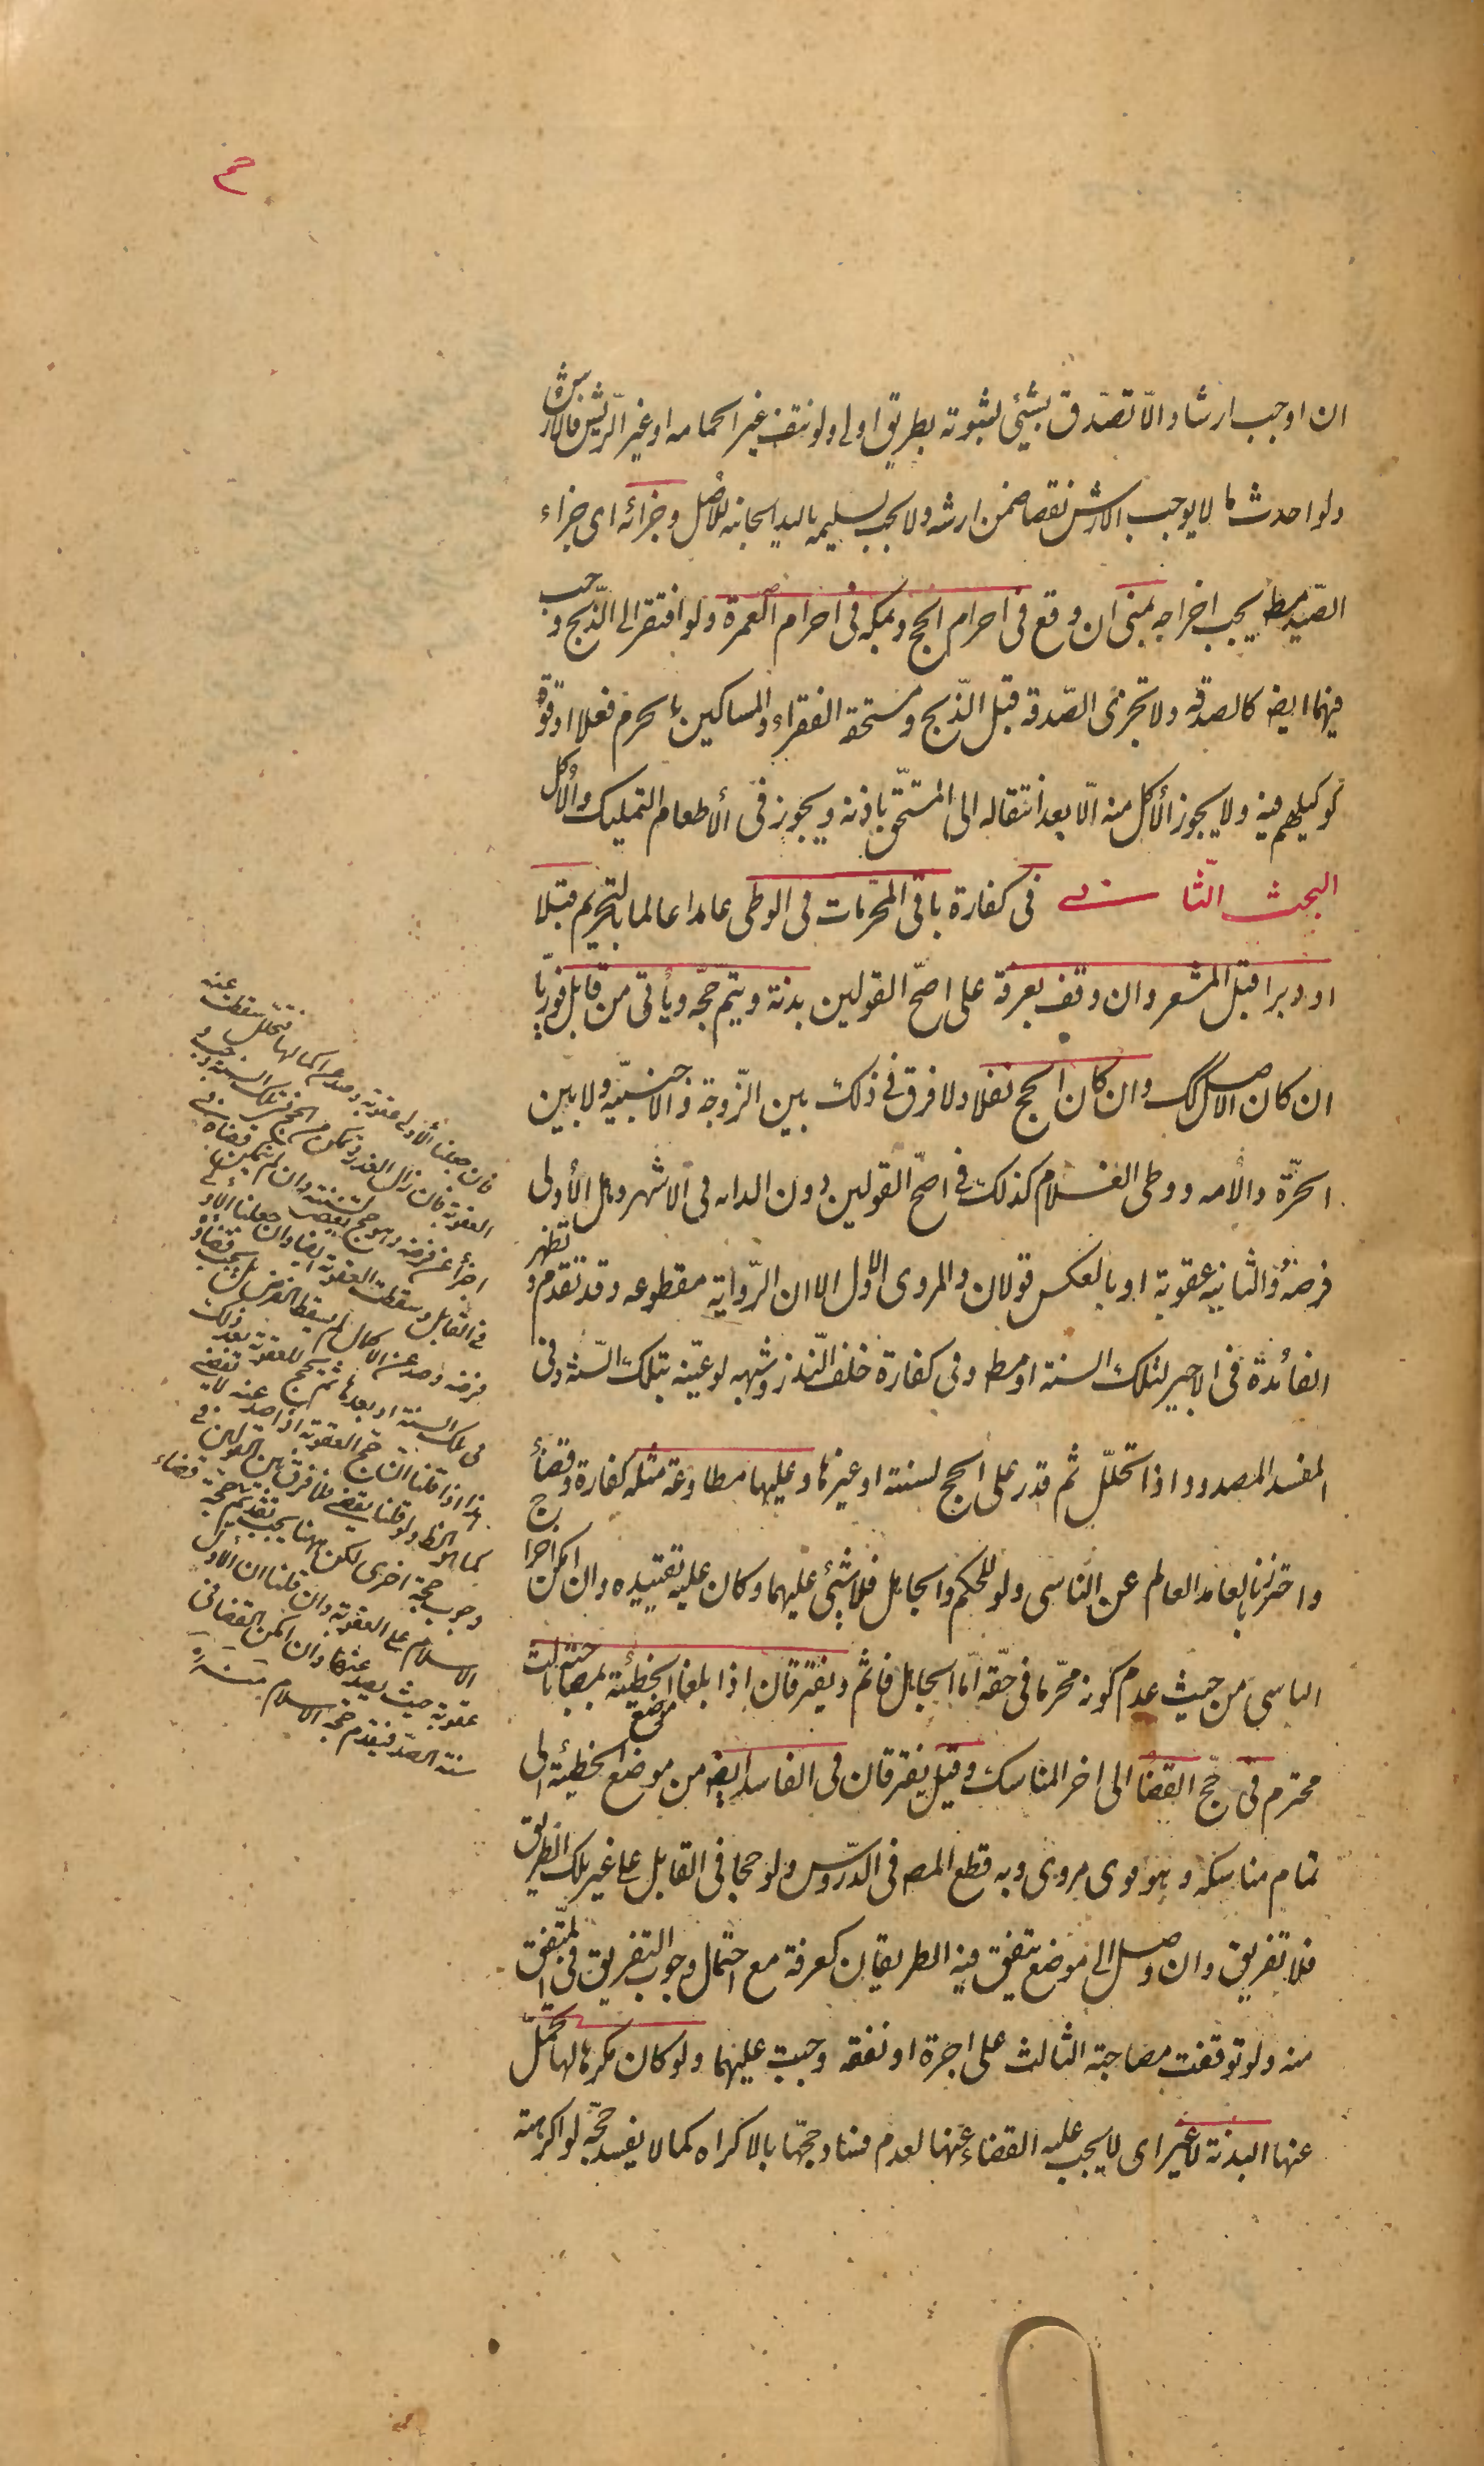 ان اوجب ارشا والّا تصدّق بشيئ لثبوته بطريق اولى ولو نتف غير الحمامه او غير الرّيش فالارش
ولو احدث ما لا يوجب الارش نقصا ضمن ارشه ولا يجب تسليمه باليد الجانيه للاصل وجزائه اى جزاء
الصّيد مط يجب اخراجه بمنى ان وقع فى احرام الحج وبمكه فى احرام العمرة ولو افتقر الى الذّبح وجب
فيهما ايضه كالصدقه ولا تجزى الصّدقه قبل الذّبح ومستحقه الفقراء والمساكين بالحرم فعلا او قوّة
كوكيلهم فيه ولا يجوز الأكل منه الّا بعد انتقاله الى المستحّق باذنه ويجوز فى الأطعام التمليك والأكل
البحث الثّانى فى كفارة باقى المحّرمات فى الوطى عامدا عالما بالتحريم قبلا
او دبرا قبل المشعر وان وقف بعرفة على اصحّ القولين بدنة ويتمّ حجّه ويأتى من قابل فوريّا
ان كان الاصل كك وان كان الحج نفلا ولا فرق فى ذلك بين الزّوجة والأجنبيّه ولا بين
الحرّة والأمه ووطى الغلام كذلك فى اصحّ القولين دون الدابه فى الاشهر وهل الأولى
فرضه والثانيه عقوبة او بالعكس قولان والمروى الاول الا ان الرّوايه مقطوعه وقد تقدم وتظهر
الفائدة فى الاجير لتلك السنة او مط وفى كفارة خلف النّذر وشبهه لو عيّنه بتلك السّنة وفى
المفسد المصدود اذا تحلّل ثم قدر على الحج لسنته او غيرها وعليها مطاوعة مثله كفارة وقضأ
واحترز بالعامد العالم عن الناسى ولو للحكم والجاهل فلا شيئ عليهما وكان عليه تقييده وان امكن اخراج
الناسى من حيث عدم كونه محّرما فى حقّه امّا الجاهل فاثم ويفترقان اذا بلغا موضع الخطيئة بمصاحبة ثالث
محترم فى حجّ القضا الى اخر المناسك وقيل يفترقان فى الفاسد ايضه من موضع الخطيئة الى
تمام مناسكه وهو قوى مروى وبه قطع المصه فى الدّروس ولو حجا فى القابل على غير تلك الطريق
فلا تفريق وان وصل الى موضع يتفق فيه الطريقان كعرفة مع احتمال وجوب التفريق فى المتّفق
منه ولو توقفت مصاحبة الثالث على اجرة او نفقه وجبت عليهما ولو كان مكرها لها تحمّل
عنها البدنة لا غير اى لا يجب عليه القضاء عنها لعدم فساد حجّها بالاكراه كما لا يفسد حجّه لو اكرهته
فان جعلنا الأولى عقوبة وصد عن اكمالها فتحلل سقطت عنه
العقوبة فان زال العذر وتمكن من الحج فى تلك السنة وجب و
اجزأ عن فرضه وهو حج يقضى لسنته وان لم يتمكن قضاه فى
فى القابل وسقطت العقوبة ايضا وان جعلنا الأولى
فرضه وصد عن الاكمال لم يسقط الفرض بل يجب قضاؤه
فى تلك السنة او بعدها ثم يحج للعقوبة بعد ذلك
هذا اذا قلنا ان حج العقوبة اذا صد عنه لا يقضى
كما هو الظ ولو قلنا يقضى فلا فرق بين القولين فى
وجوب حجة اخرى لكن هنا يجب تقديم حجة
الاسلام على العقوبة وان قلنا ان الأولى
عقوبة حيث يصد عنها وان امكن القضا فى
سنة الصد فيقدم حجة الاسلام منه ره